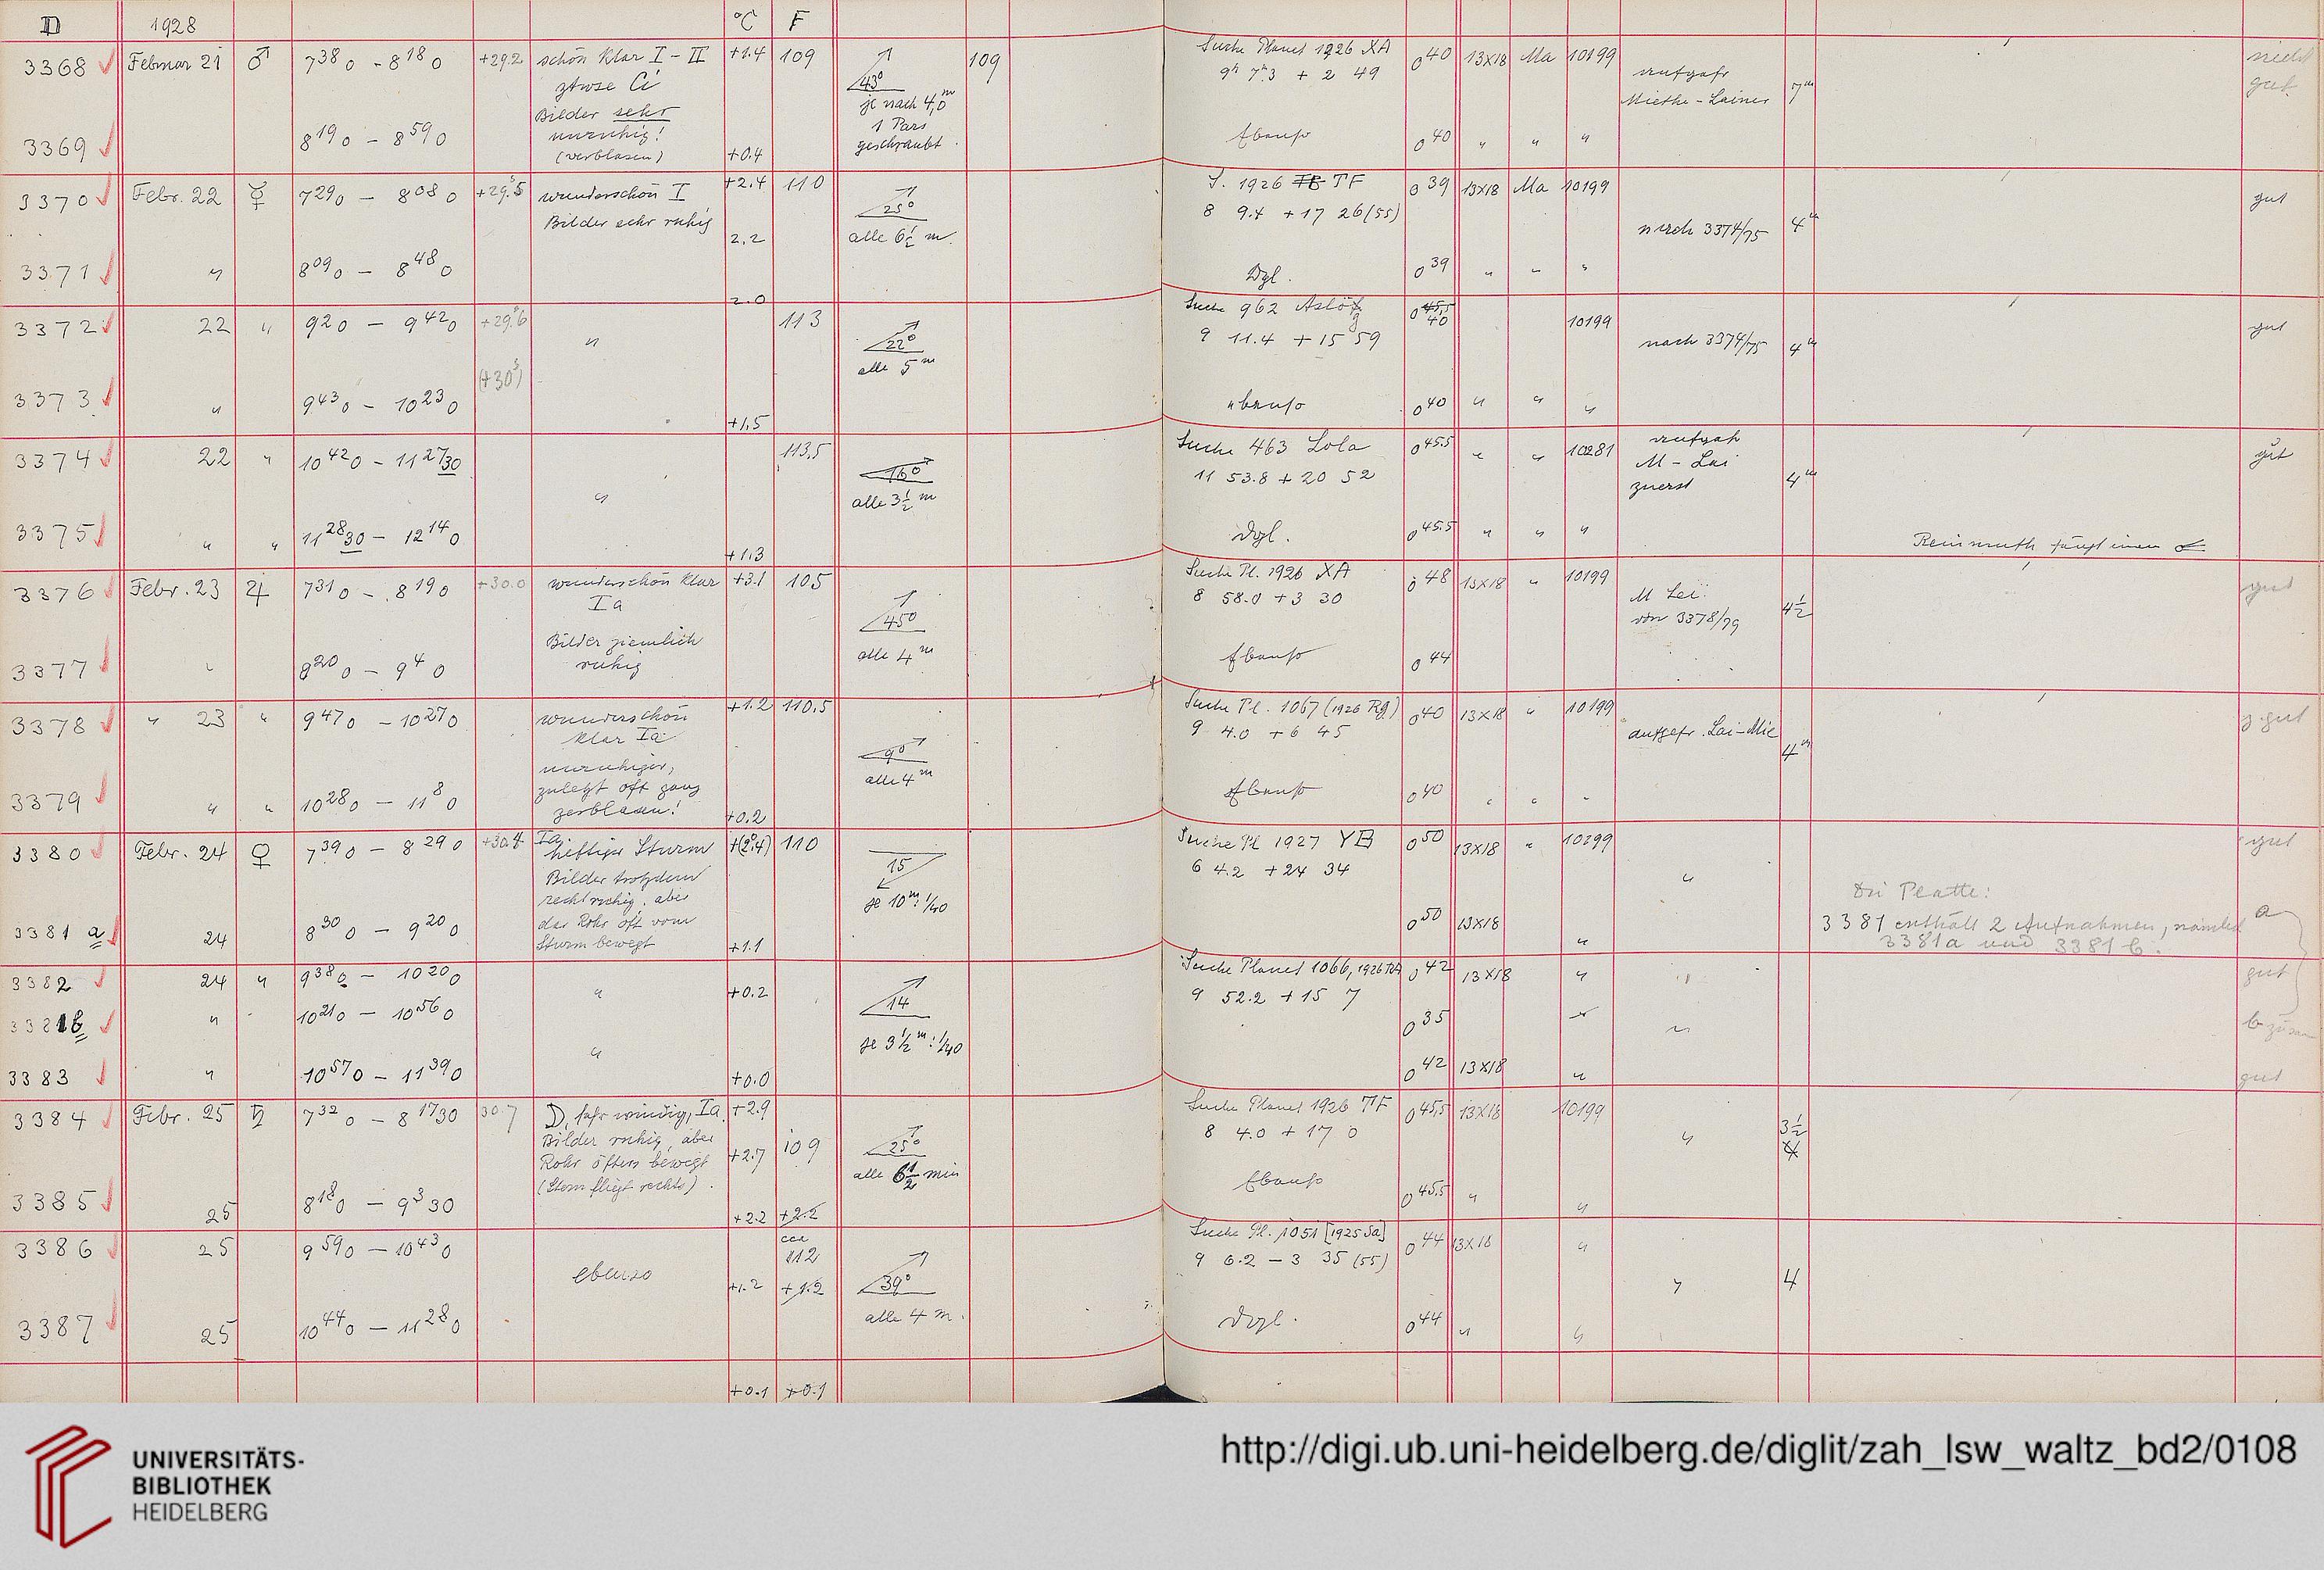 D 1928 °C F
3368 Februar 21 ♂ 7 38 0 - 8 18 0 +29.2 schön klar I - II +1.4 109 43° 109 Suche Planet 1926 XA 0 40 13x18 Ma 10199 nicht
ztwse Ci je nach 4,0 m 9h 7m.3 + 2 49 Miethe - Lainer 7m gut
Bilder sehr 1 Pars
3369 8 19 0 - 8 59 0 unruhig! geschraubt Ebenso 0 40 " " "
(verblasen) +0.4
3370 Febr. 22 ☿ 7 29 0 - 8 08 0 +29.5 wunderschön I +2.4 110 25° S. 1926 TF 0 39 13x18 Ma 10199 gut
Bilder sehr ruhig 2.2 alle 6½ m. 8 9.4 + 17 26 (55) nach 3374/75 4m
3371 " 8 09 0 - 8 48 0 2.0 Dgl. 0 39 " " "
3372 22 " 9 2 0 - 9 42 0 +29.6 " 113 22° Suche 962 Aslög 0 40 10199 nach 3374/75 4m gut
(+30.5) alle 5 m 9 11.4 + 15 59
3373 " 9 43 0 - 10 23 0 +1,5 ebenso 0 40 " " "
3374 22 " 10 42 0 - 11 27 30 " 113,5 16° Suche 463 Lola 0 45.5 " " 10281 gut
alle 3½ m 11 53.8 + 20 52 M - Lai
zuerst 4m
3375 " " 11 28 30 - 12 14 0 +1.3 Dgl. 0 45.5 " " "
Reinmuth fängt einen
3376 Febr. 23 ♃ 7 31 0 - 8 19 0 +30.0 wunderschön klar +3.1 105 45° Suche Pl. 1926 XA 0 48 13x18 " 10199 gut
Ia 8 58.0 + 3 30 M Lei.
Bilder ziemlich alle 4 m von 3378/79 4½
3377 " 8 20 0 - 9 4 0 ruhig Ebenso 0 44
3378 " 23 " 9 47 0 - 10 27 0 wunderschön +1.2 110.5 9° Suche Pl. 1067 (1926 RG) 0 40 13x18 " 10199 z. gut
klar Ia 9 4.0 + 6 45 aufgefr. Lai-Mie 4m
unruhiger, alle 4 m
3379 " " 10 28 0 - 11 8 0 zuletzt oft ganz Ebenso 0 40 " " "
zerblasen! +0.2
3380 Febr. 24 ♀ 7 39 0 - 8 29 0 +30.4 Ia, heftiger Sturm +(2.4) 110 15 Suche Pl 1927 YB 0 50 13x18 " 10199 " gut
Bilder trotzdem je 10 m: 1/40 6 4.2 + 24 34
recht ruhig, aber Die Platte:
3381 a 24 8 30 0 - 9 20 0 das Rohr oft vom 0 50 13x18 " 3381 enthält 2 Aufnahmen, nämlich a
Sturm bewegt +1.1 3381a und 3381b.
3382 24 " 9 38 0 - 10 20 0 " +0.2 14 Suche Planet 1066, 0 42 13x18 " " gut
3381b " 10 21 0 - 10 56 0 9 52.2 + 15 7 0 35 " " b
" je 3½ m: 1/40
3383 " 10 57 0 - 11 39 0 +0.0 0 42 13x18 " gut
3384 Febr. 25 ♄ 7 32 0 - 8 17 30 30.7 D, sehr windig, Ia +2.9 Suche Planet 1926 TF 0 45,5 13x18 10199
Bilder ruhig, aber +2.7 109 25° 8 4.0 + 17 0 " 3½
Rohr öfters bewegt alle 6½ min
3385 25 8 18 0 - 9 3 30 (Stern fliegt rechts). +2.2 +2.2 Ebenso 0 45,5 " "
3386 25 9 59 0 - 10 43 0 cca 112 Suche Pl. 1051 [1925 Sa] 0 44 13x18 "
ebenso +1.2 +1.2 39° 9 6.2 - 3 35 (55) " 4
3387 25 10 44 0 - 11 28 0 alle 4 m. Dgl. 0 44 " "
+0.1 +0.1
UNIVERSITÄTS-
BIBLIOTHEK
HEIDELBERG
http://digi.ub.uni-heidelberg.de/diglit/zah_lsw_waltz_bd2/0108